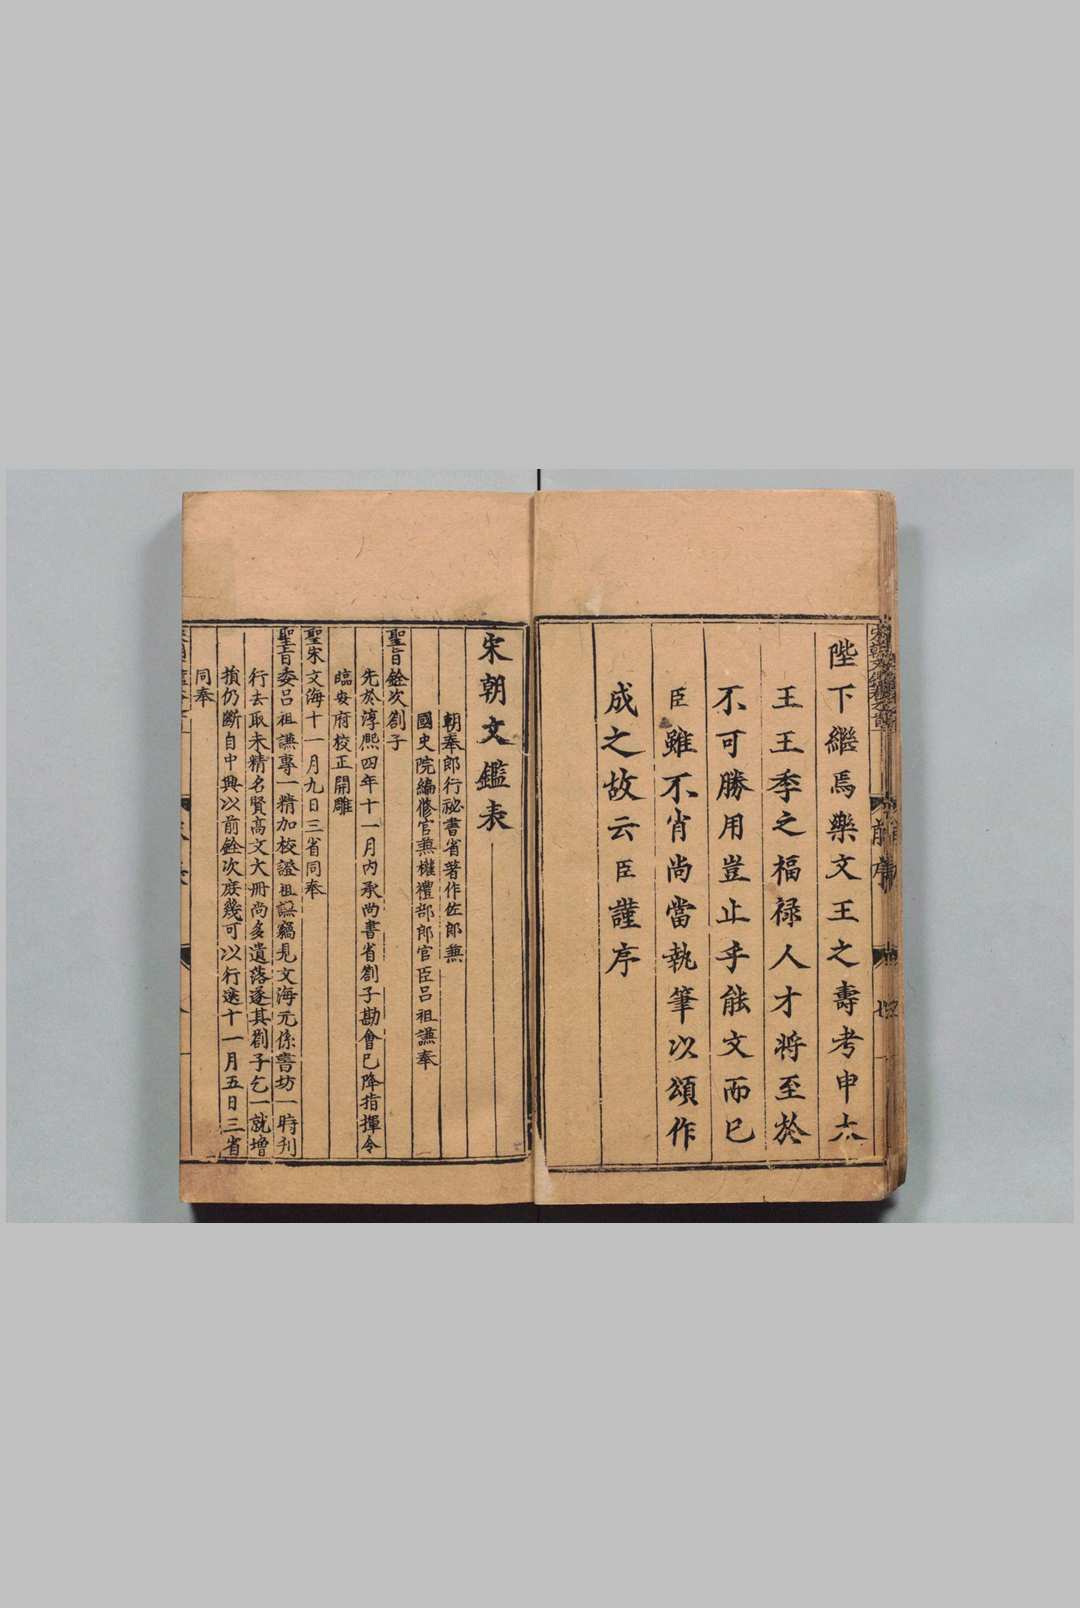 陛下繼焉樂文王之壽考申大
王王季之福祿人才將至於
不可勝用豈止乎能文而已
臣雖不肖尚當執筆以頌作
成之故云臣謹序
宋朝文鑑表
朝奉郎行祕書省著作佐郎兼
國史院編修官兼權禮部郎官臣呂祖謙奉
聖旨銓次劄子
先於淳熙四年十一月內承尚書省劄子勘會已降指揮令
臨安府校正開雕
聖宋文海十一月九日三省同奉
聖旨委呂祖謙專一精加校證祖謙竊見文海元係書坊一時刊
行去取未精名賢高文大冊尚多遺落遂具劄子乞一就增
損仍斷自中興以前銓次庶幾可以行遠十一月五日三省
同奉